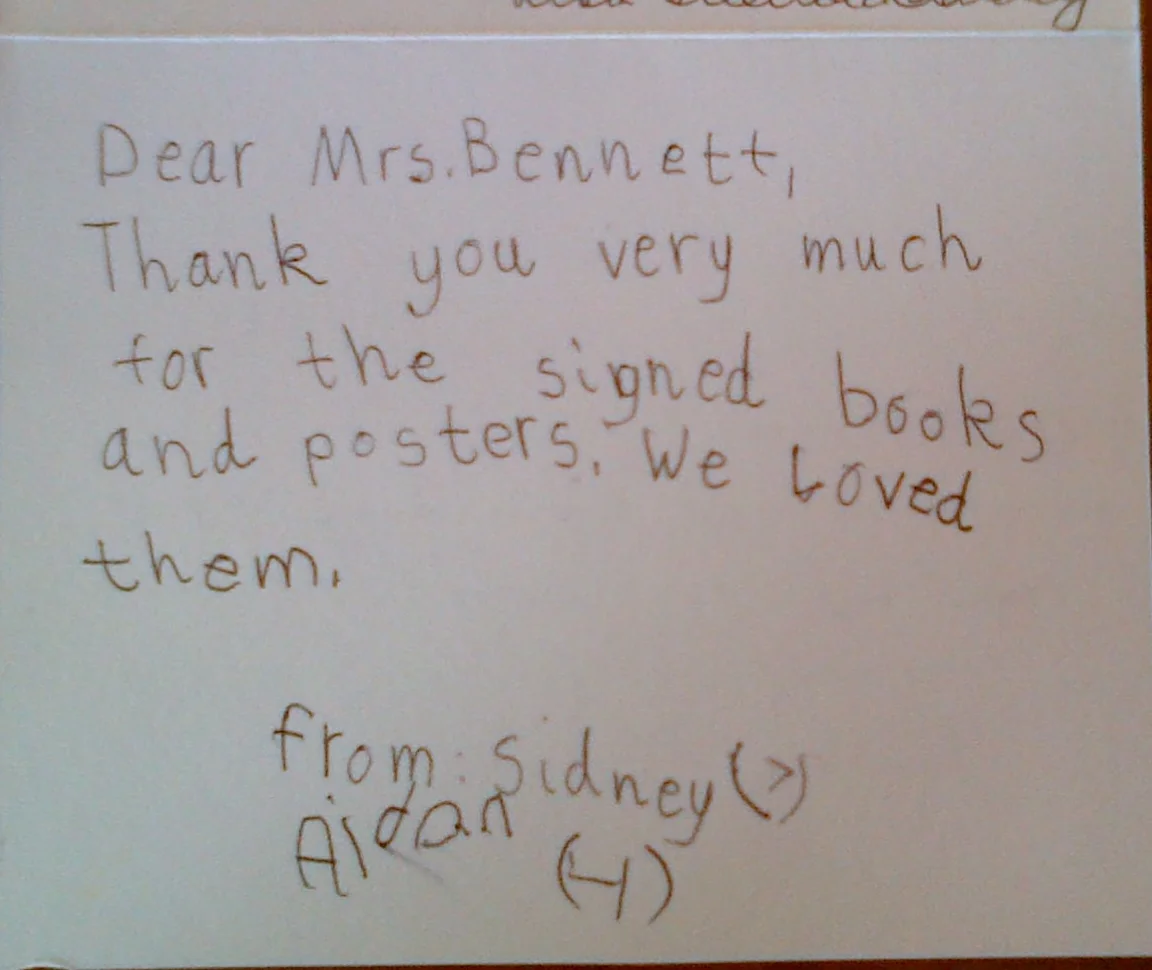 Dear Mrs. Bennett,
Thank you very much
for the signed books
and posters. We Loved
them.
from: Sidney (7)
Aidan (4)